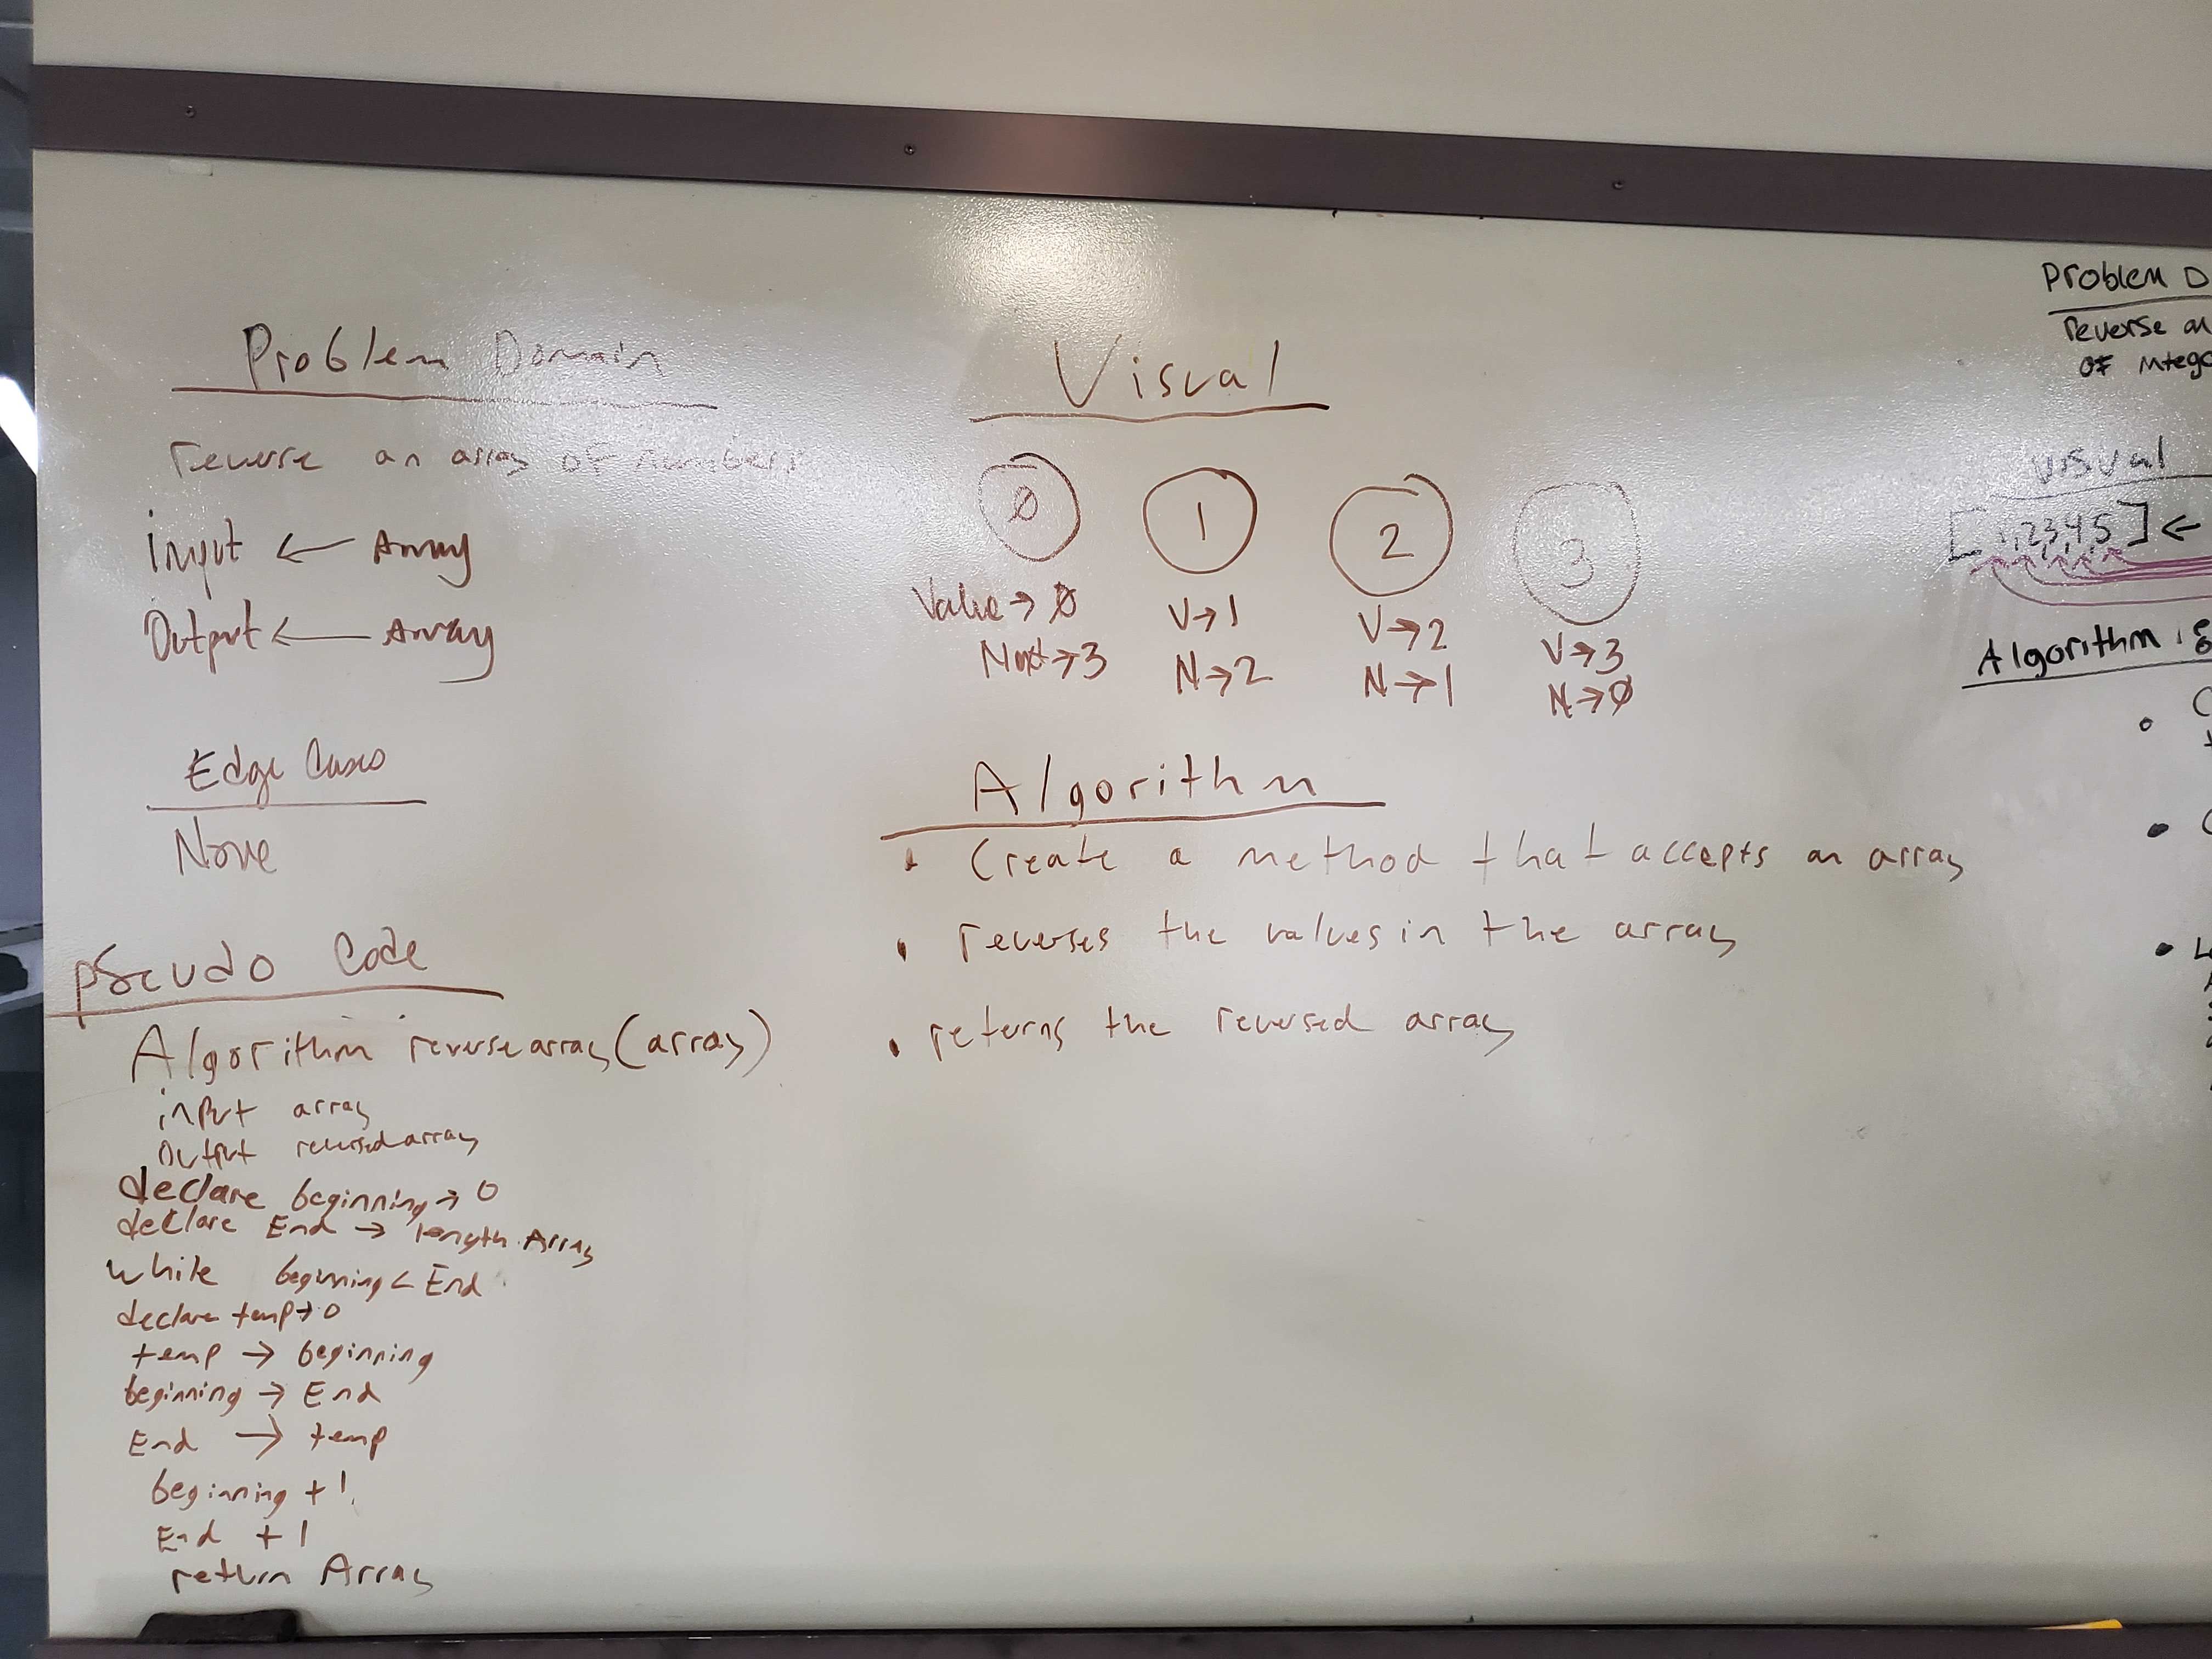 Problem Domain
reverse an array of numbers
input ← Array
Output ← Array
Edge Cases
None
Pseudo Code
Algorithm reversearray(array)
input array
Output reversedarray
declare beginning → 0
declare End → length.Array
while beginning < End
declare temp → 0
temp → beginning
beginning → End
End → temp
beginning + 1
End + 1
return Array
Visual
0 1 2 3
Value → 0 V → 1 V → 2 V → 3
Next → 3 N → 2 N → 1 N → 0
Algorithm
• Create a method that accepts an array
• reverses the values in the array
• returns the reversed array
Problem D
reverse
of
Visual
[1,2,3,4,5] ←
Algorithm :